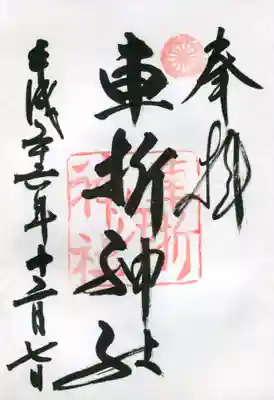 奉拝
車折神社
平成廿六年十二月七日
車折
神社